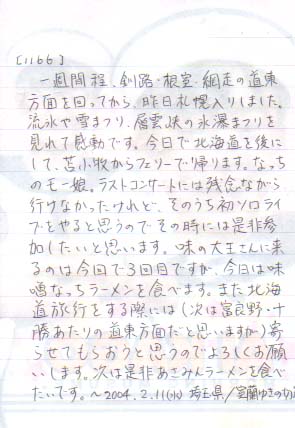 [1166]
一週間程、釧路・根室・網走の道東
方面を回ってから、昨日札幌入りしました。
流氷や雪まつり、層雲峡の氷瀑まつりを
見れて感動です。今日で北海道を後に
して、苫小牧からフェリーで帰ります。なっち
のモー娘。ラストコンサートには残念ながら
行けなかったけれど、そのうち初ソロライ
ブをやると思うのでその時には是非参
加したいと思います。味の大王さんに来
るのは今回で3回目ですが、今日は味
噌なっちラーメンを食べます。また北海
道旅行をする際には(次は富良野・十
勝あたりの道東方面だと思いますが)寄
らせてもらおうと思うのでよろしくお願
いします。次は是非あさみんラーメンを食べ
たいです。~2004.2.11(水) 埼玉県/室蘭ゆきの